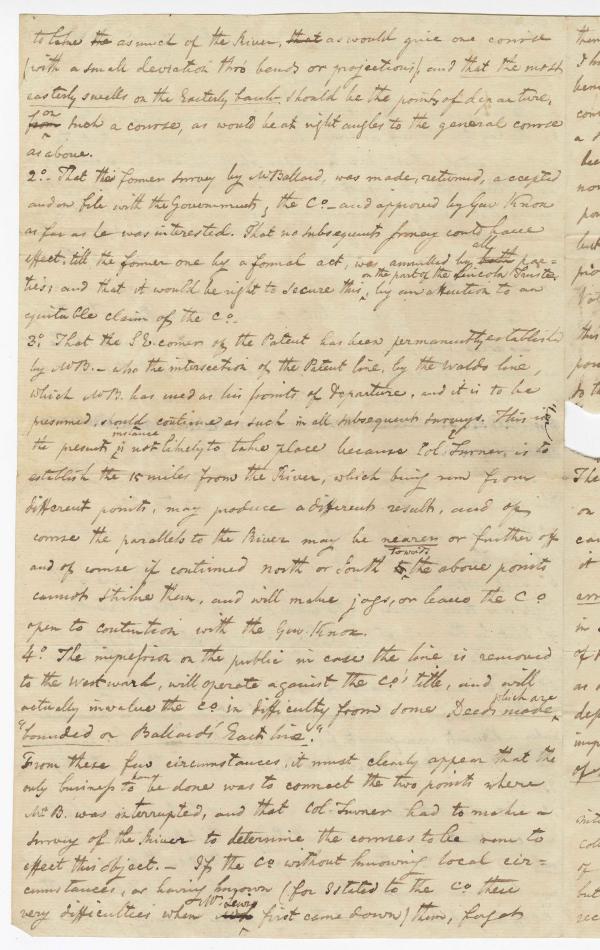 to take the as much of the River, that as would give one course
(with a small deviation thro' bends or projections), and that the most
easterly swells on the Easterly bank should be the points of departure,
from on such a course, as would be at right angles to the general course
as above.
2o. That the former survey by Mr Ballard, was made, returned, accepted
and on file with the Government, the Co. and approved by Gen Knox
as far as he was interested. That no subsequent survey could have
effect, till the former one by a formal act, was annulled by both all par=
ties; and that it would be right to secure this, on the part of the Lincoln Trustee, by an attention to an
equitable claim of the Co.
3o. That the S.E. corner of the Patent has been permanently established
by Mr B. - also the intersection of the Patent line, by the Waldo line,
which Mr B. has used as his points of Departure, and it is to be
presumed, should continue as such in all subsequent surveys. This in
the present instance is not likely to take place because Col. Turner, is to
establish the 15 miles from the River, which being run from
different points, may produce a different result, and of
course the parallels to the River may be nearer or further off
and of course if continued north or South to towards the above points
cannot strike them, and will make jogs, or leave the Co
open to contention with the Gen. Knox.
4o. The impression on the public in case the line is removed
to the Westward, will operate against the Co's title, and will
actually involve the Co. in difficulty from some Deeds made which are
"bounded on Ballard's East line."
From these few circumstances, it must clearly appear that the
only business to be done was to connect the two points where
Mr B. was interrupted, and that Col. Turner had to make a
survey of the River to determine the courses to be run to
effect this object. - If the Co without knowing local cir=
cumstances, or having known (for I stated to the Co these
very difficulties when Mr Lewis first came down) them, forgot